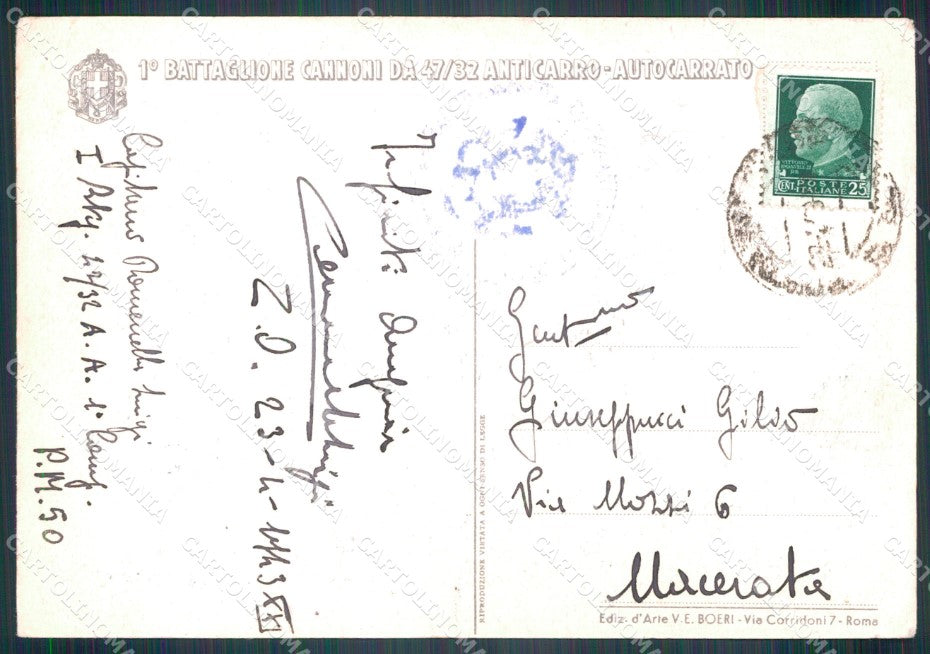 1º BATTAGLIONE CANNONI DA 47/32 ANTICARRO-AUTOCARRATO
POSTE
ITALIANE
CENT. 25
Capitano Romenelli Luigi
I Btg. 47/32 A. A. 1ª Comp.
P.M. 50
Infiniti auguri
Z.O. 23-4-1943 XXI
Giuseppucci Gildo
Via Mozzi 6
Macerata
RIPRODUZIONE VIETATA A OGNI SENSO DI LEGGE
Ediz. d'Arte V. E. BOERI - Via Corridoni 7 - Roma
CARTOLINOMANIA